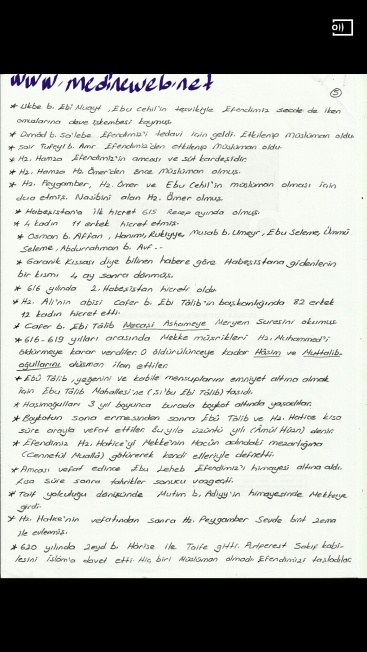 www.medineweb.net
5
* Ukbe b. Ebi Muayt, Ebu Cehil'in teşvikiyle Efendimiz secde de iken
omuzlarına deve işkembesi koymuş.
* Dımâd b. Sa'lebe Efendimiz'i tedavi için geldi. Etkilenip müslüman oldu.
* Şair Tufeyl b. Amr Efendimiz'den etkilenip Müslüman oldu.
* Hz. Hamza Efendimiz'in amcası ve süt kardeşidir.
* Hz. Hamza Hz. Ömer'den önce Müslüman olmuş.
* Hz. Peygamber, Hz. Ömer ve Ebu Cehil'in müslüman olması için
dua etmiş. Nasibini alan Hz. Ömer olmuş.
* Habeşistan'a ilk hicret 615 Recep ayında olmuş.
* 4 kadın 11 erkek hicret etmiş.
* Osman b. Affan, Hanımı Rukiyye, Musab b. Umeyr, Ebu Seleme, Ümmü
Seleme, Abdurrahman b. Avf...
* Garanik Kıssası diye bilinen habere göre Habeşistana gidenlerin
bir kısmı 4 ay sonra dönmüş.
* 616 yılında 2. Habeşistan hicreti oldu
* Hz. Ali'nin abisi Cafer b. Ebi Tâlib'in başkanlığında 82 erkek
12 kadın hicret etti.
* Cafer b. Ebi Tâlib Necaşi Ashameye Meryem Suresini okumuş
* 616-619 yılları arasında Mekke müşrikleri Hz. Muhammed'i
öldürmeye karar verdiler. O öldürülünceye kadar Hâşim ve Muttalib
oğullarını düşman ilan ettiler.
* Ebû Tâlib, yeğenini ve kabile mensuplarını emniyet altına almak
için Ebu Tâlib Mahallesi'ne (Şi'bu Ebi Tâlib) taşıdı.
* Haşimoğulları 3 yıl boyunca burada boykot altında yaşadılar.
* Boykotun sona ermesinden sonra Ebû Tâlib ve Hz. Hatice kısa
süre arayla vefat ettiler. bu yıla üzüntü yılı (Âmül Hüzn) denir.
* Efendimiz Hz. Hatice'yi Mekke'nin Hacûn adındaki mezarlığına
(Cennetül Muallâ) götürerek kendi elleriyle defnetti.
* Amcası vefat edince Ebu Leheb Efendimiz'i himayesi altına aldı.
Kısa süre sonra tahrikler sonucu vazgeçti.
* Taif yolculuğu dönüşünde Mutim b. Adiyy'in himayesinde Mekkeye
girdi.
* Hz. Hatice'nin vefatından sonra Hz. Peygamber Sevde bint Zema
ile evlenmiş.
* 620 yılında Zeyd b. Hârise ile Taife gitti. Putperest Sakif kabi-
lesini İslâm'a davet etti. Hiç biri Müslüman olmadı Efendimizi taşladılar